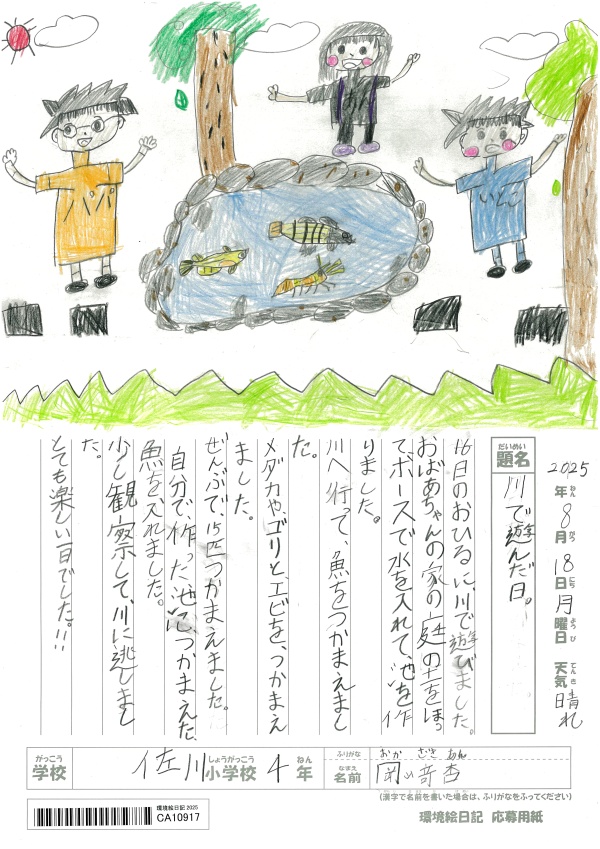 パパ
いとこ
2025年ねん8月がつ18日にち月曜日ようび 天気てんき 晴れ
題名だいめい
川で遊んだ日。
16日のおひるに、川で遊びました。
おばあちゃんの家の庭の土をほっ
てホースで水を入れて、池を作
りました。
川へ行って、魚をつかまえまし
た。
メダカや、ゴリと、エビを、つかまえ
ました。
ぜんぶで、15匹つかまえました。
自分で、作った池に、つかまえた、
魚を入れました。
少し観察して、川に逃しまし
た。
とても楽しい一日でした。!!
がっこう 学校 佐川小学校しょうがっこう 4年ねん
ふりがな おか ざき あん
なまえ 名前 岡﨑杏
(漢字で名前を書いた場合は、ふりがなをふってください)
環境絵日記 2025
CA10917
環境絵日記 応募用紙